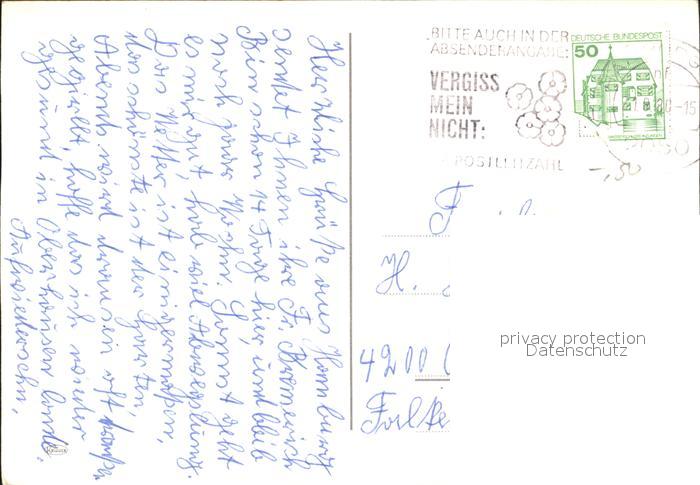 Herzliche Grüße aus Hamburg
sendet Ihnen ihre Fr.
Bin schon 14 Tage hier, und bleib
noch paar Wochn. Sonst geht
es mir gut hab viel Abwegslung.
Das Wetter ist einigermaßen,
das schönste ist der Garten,
Abends wird draussen oft
gegrillt, hoffe das ich wieder
gesund in Oberhausen lande.
Aufwiedersehn,
BITTE AUCH IN DER
ABSENDERANGABE:
VERGISS
MEIN
NICHT:
POSTLEITZAHL
DEUTSCHE BUNDESPOST
50
-,50
F
H.
4200
privacy protection
Datenschutz